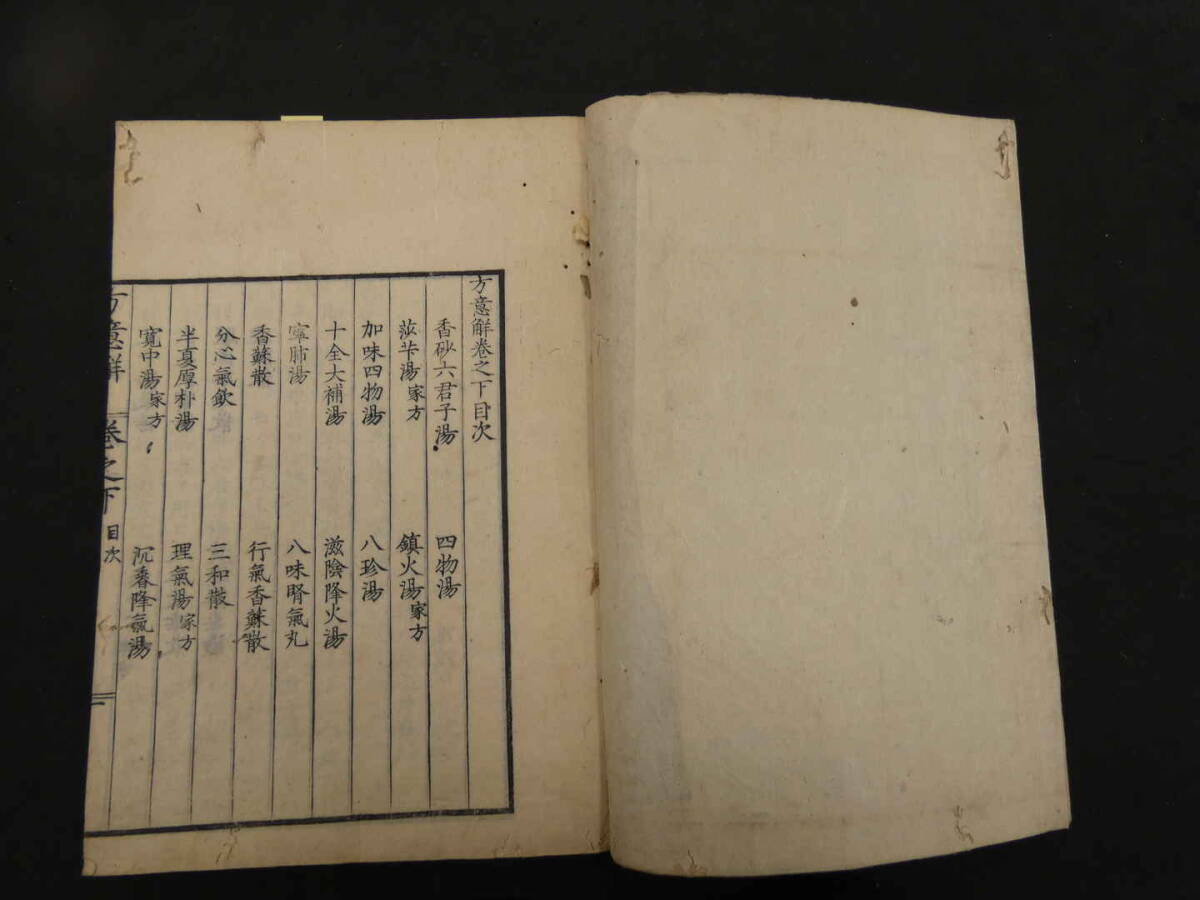 方意解卷之下目次
香砂六君子湯 四物湯
莎芐湯家方 鎮火湯家方
加味四物湯 八珍湯
十全大補湯 滋陰降火湯
寧肺湯 八味腎氣丸
香蘇散 行氣香蘇散
分心氣飲 三和散
半夏厚朴湯 理氣湯家方
寬中湯家方 沉香降氣湯
方意解 卷之下 目次 一